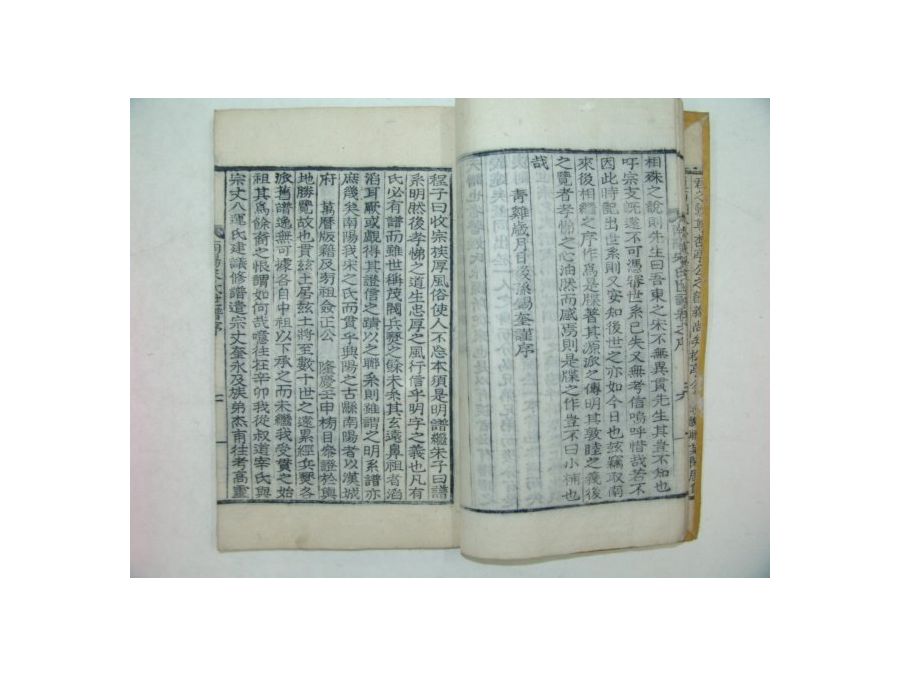 相殊之說則先生曰吾東之宋不無異貫先生其豈不知也
吁宗支旣遂不可憑舊世系已失又無考信嗚呼惜哉若不
因此時記出世系則又安知後世之亦如今日也玆竊取南
來後相繼之序作爲是牒著其源派之傳明其敦睦之義後
之覽者孝悌之心油然而感焉則是牒之作豈不曰小補也
哉
靑雞歲月日後孫錫奎謹序
程子曰收宗族厚風俗使人不忘本須是明譜繼朱子曰譜
系明然後孝悌之道生忠厚之風行信乎明字之義也凡有
氏必有譜而雖世稱茂閥兵燹之餘未糸其玄遠鼻祖者滔
滔耳厥或觀得其證信之蹟以之聯系則雖謂之明系譜亦
庶幾矣南陽我宋之氏而貫乎興陽之古縣南陽者以漢城
府 萬曆版籍及勿祖僉正公 隆慶壬申榜目參證於輿
地勝覽故也貫玆土居玆土將至數十世之遠累經兵燹各
派舊譜逸無可據各自中祖以下承之而未繼我受貫之始
祖其爲餘裔之恨謂如何哉噫往在辛卯我從叔道宰氏與
宗丈八運氏建議修譜遣宗丈奎永及族弟杰甫往考高靈